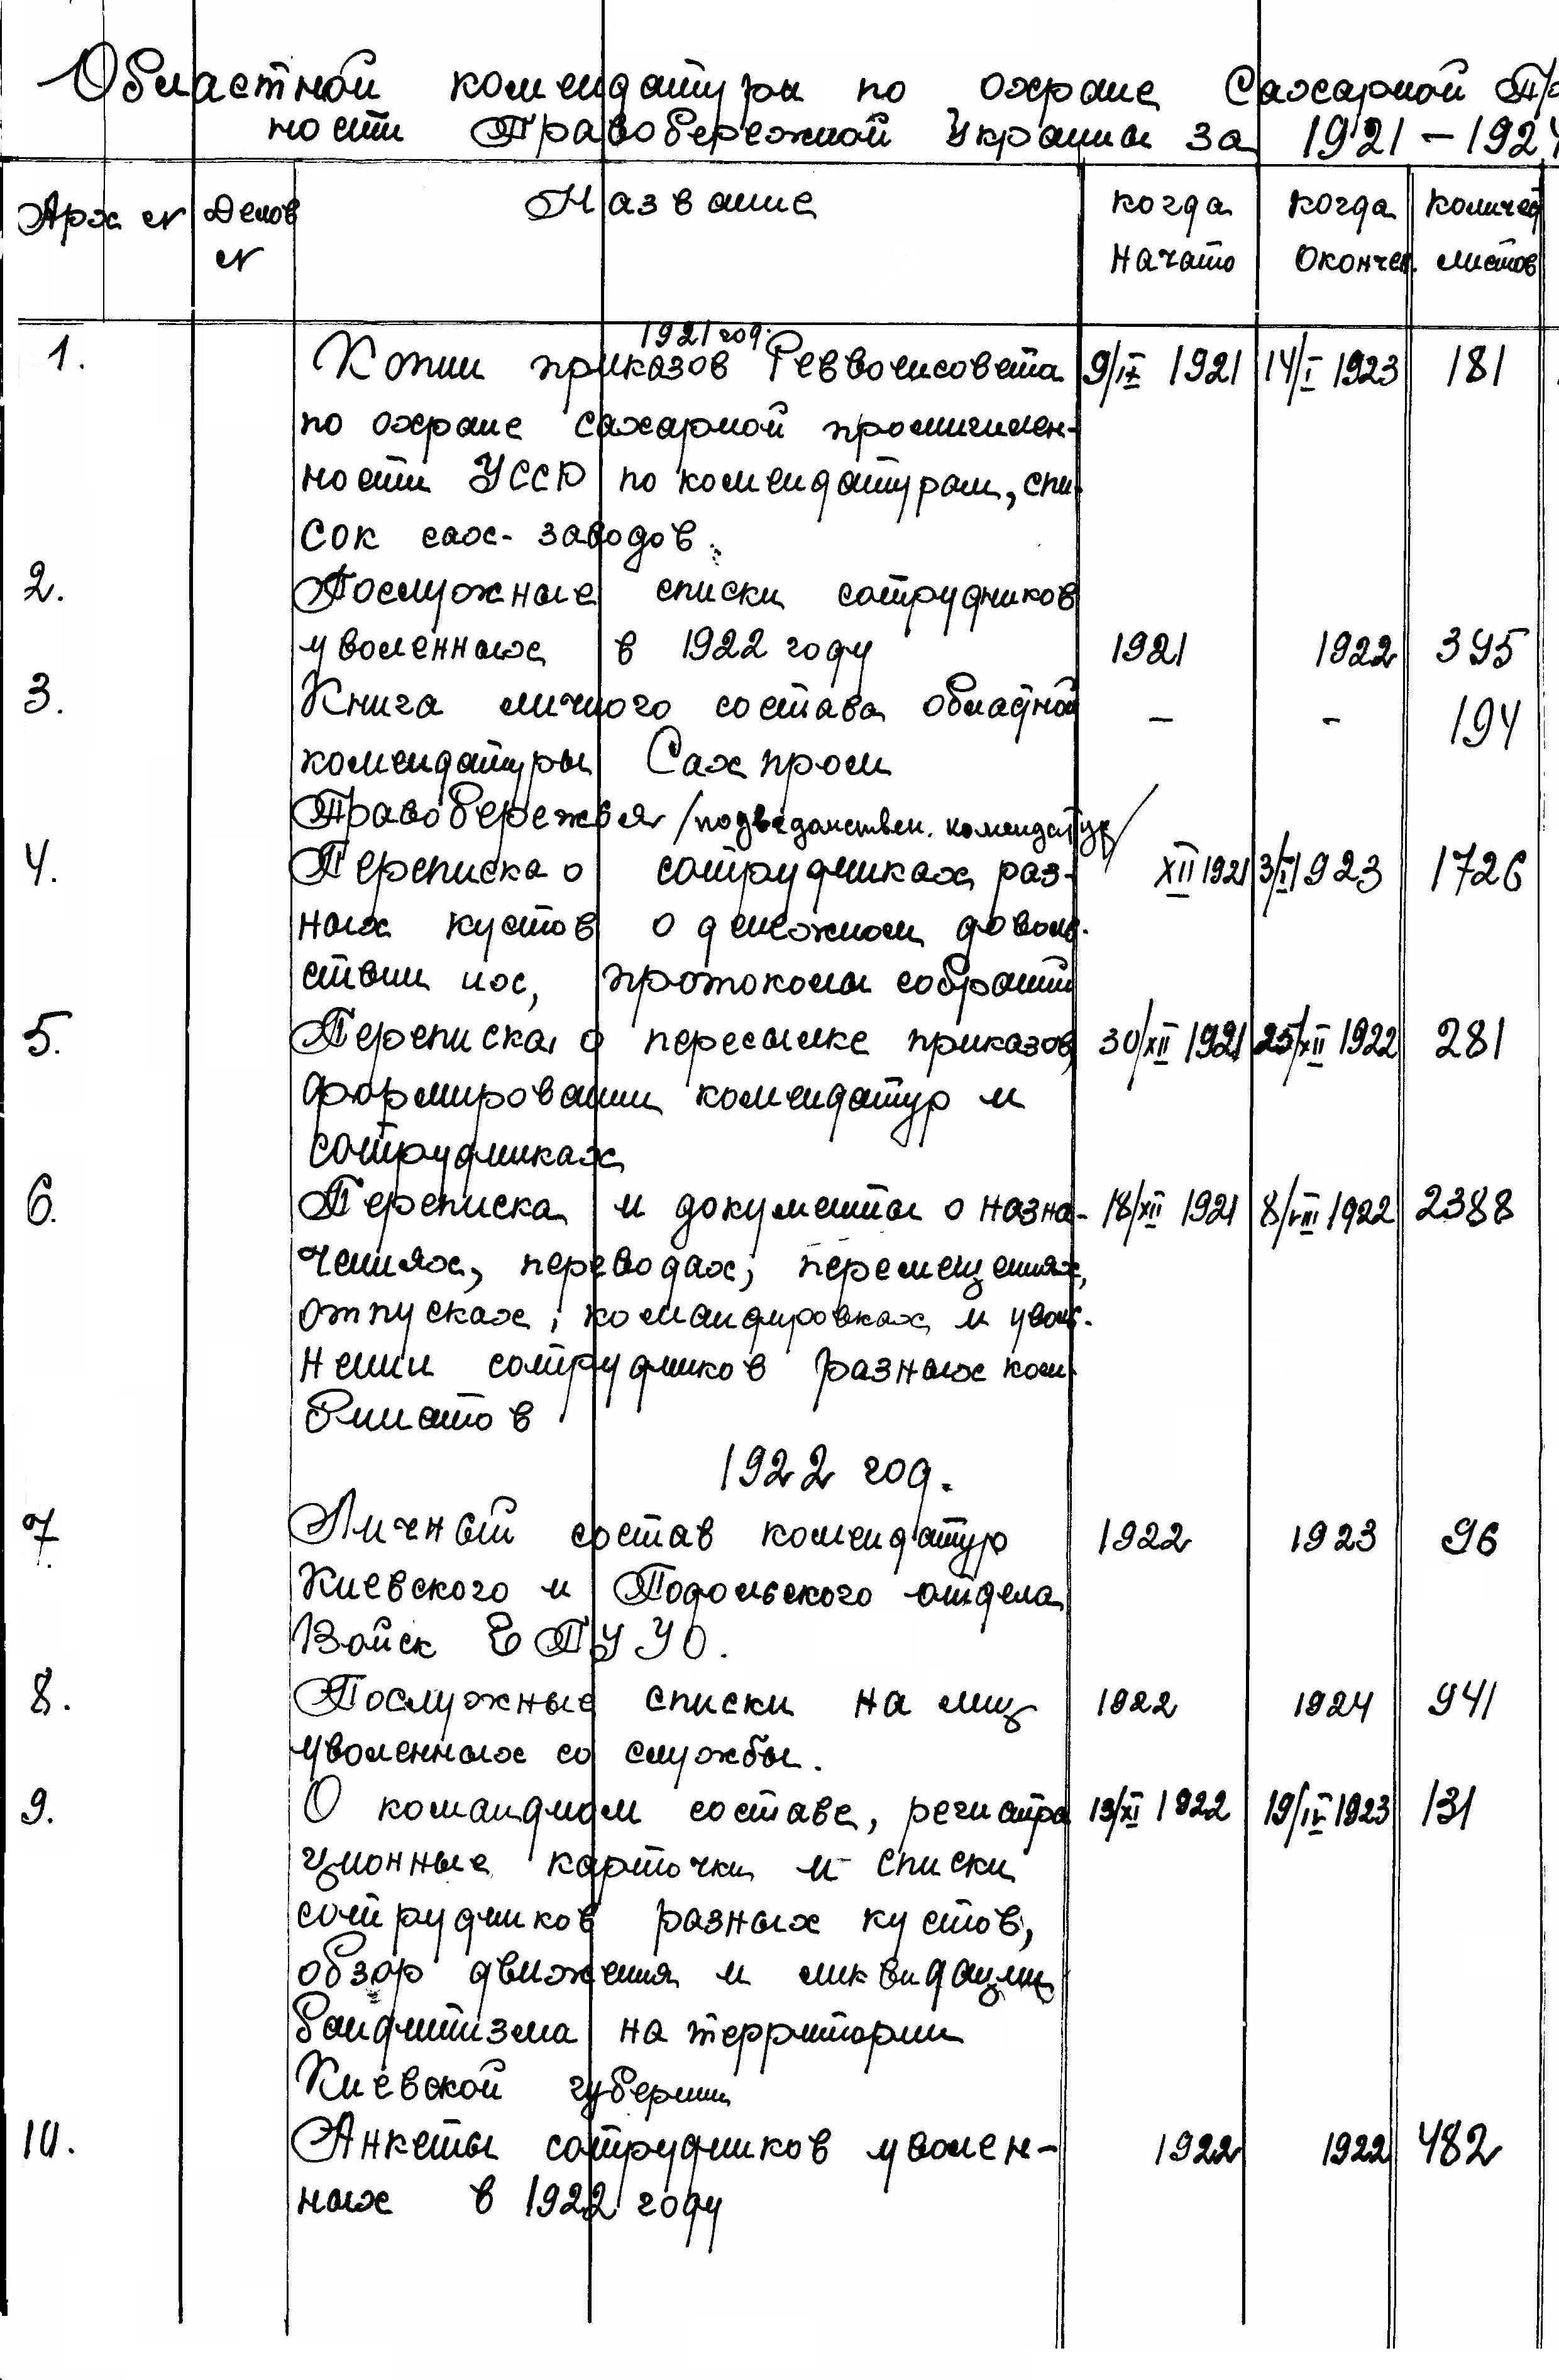 Областной комендатуры по охране Сахарной Пр
ности Правобережной Украины за 1921-1924
Арх № Делов № Название когда начато когда окончен. количес листов
1921 год.
1. Копии приказов Реввоенсовета 9/IX 1921 14/I 1923 181
по охране сахарной промышлен-
ности УССР по комендатурам, спи-
сок сах-заводов.
2. Послужные списки сотрудников
уволенных в 1922 году 1921 1922 395
3. Книга личного состава областной - - 194
комендатуры Сахпром
Правобережья /подведомствен. комендатур/
4. Переписка о сотрудниках раз- XII 1921 3/I 1923 1726
ных кустов о денежном доволь-
ствии их, протоколы собраний
5. Переписка о пересылке приказов, 30/XII 1921 25/XII 1922 281
формировании комендатур и
сотрудниках
6. Переписка и документы о назна- 18/XII 1921 8/VIII 1922 2388
чениях, переводах, перемещениях,
отпусках, командировках и уволь-
нении сотрудников разных ком-
бинатов
1922 год.
7. Личный состав комендатур 1922 1923 96
Киевского и Подольского отдела
Войск ГПУ УО.
8. Послужные списки на лиц 1922 1924 941
уволенных со службы.
9. О командном составе, регистра 13/XI 1922 19/IV 1923 131
ционные карточки и списки
сотрудников разных кустов,
обзор движения и ликвидации
бандитизма на территории
Киевской губернии
10. Анкеты сотрудников уволен- 1922 1922 482
ных в 1922 году